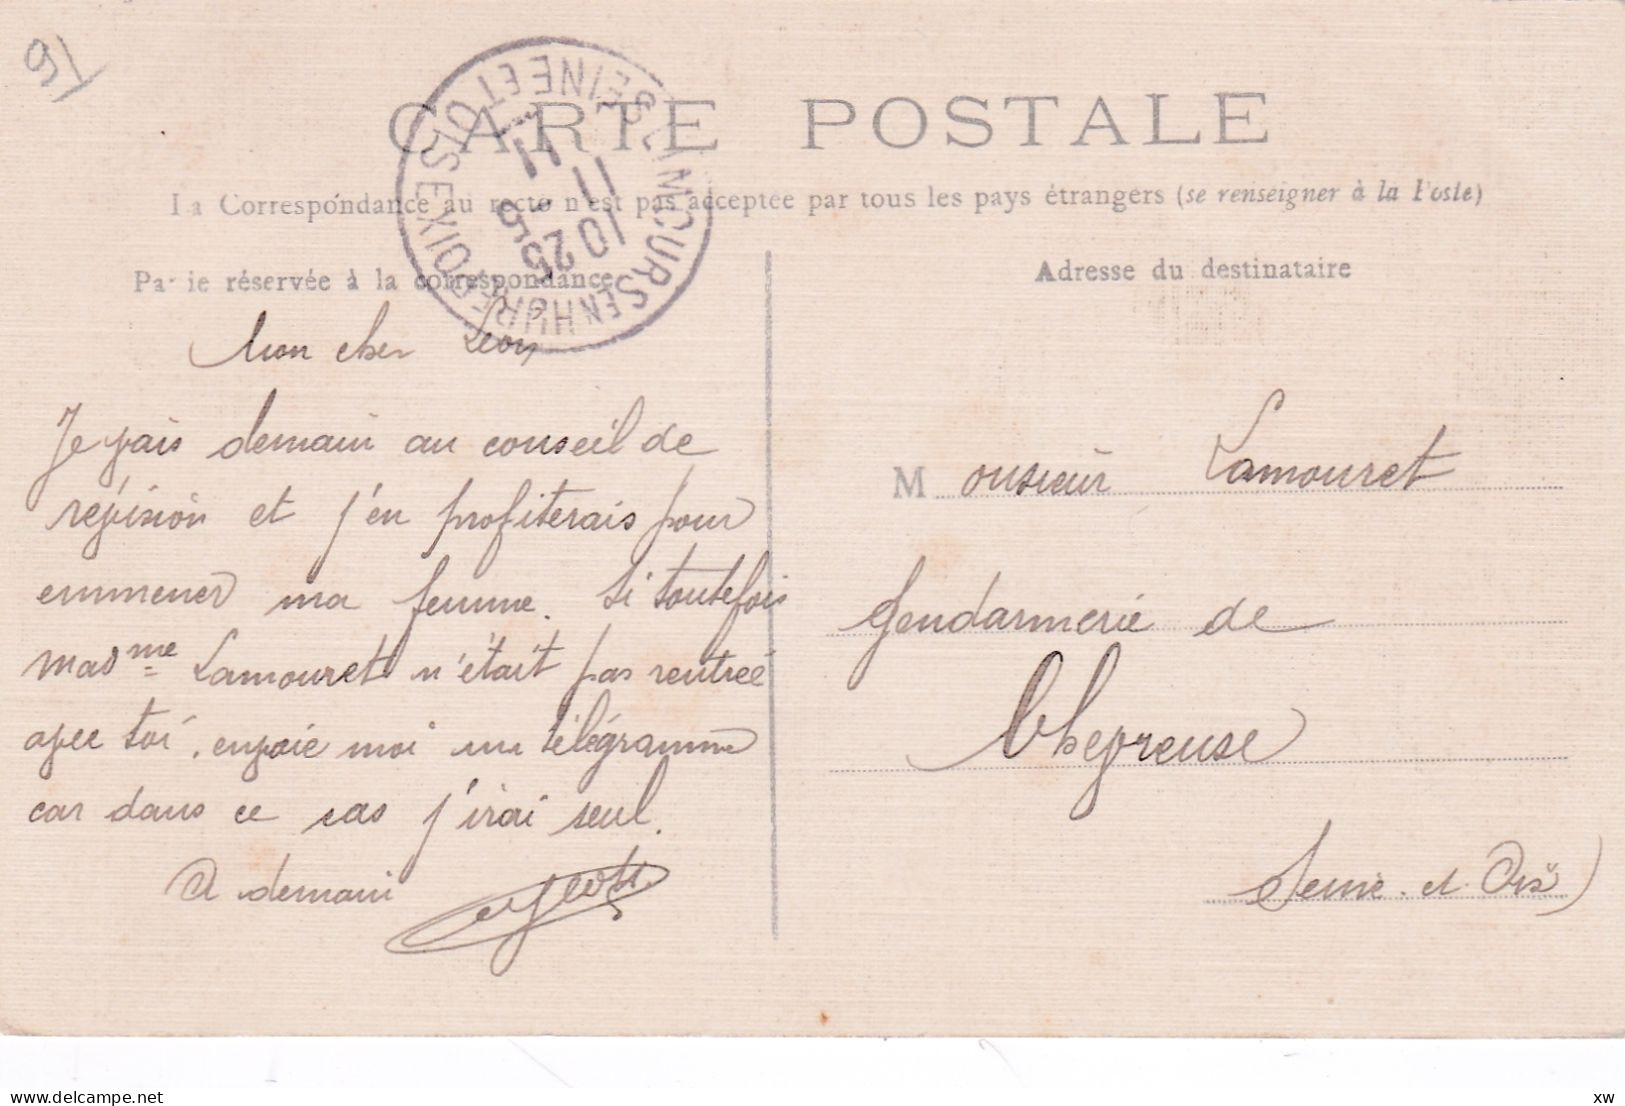 91
CARTE POSTALE
La Correspondance au recto n'est pas acceptée par tous les pays étrangers (se renseigner à la Poste)
Partie réservée à la correspondance
Adresse du destinataire
LIMOURS EN HUREPOIX
SEINE ET OISE
11
10 25
Mon cher Léon
Je vais demain au conseil de
révision et j'en profiterais pour
emmener ma femme. Si toutefois
Madme Lamouret n'était pas rentrée
avec toi, envoie moi un télégramme
car dans ce cas j'irai seul.
A demain
Monsieur Lamouret
Gendarmerie de
Chevreuse
Seine-et-Oise)
xw